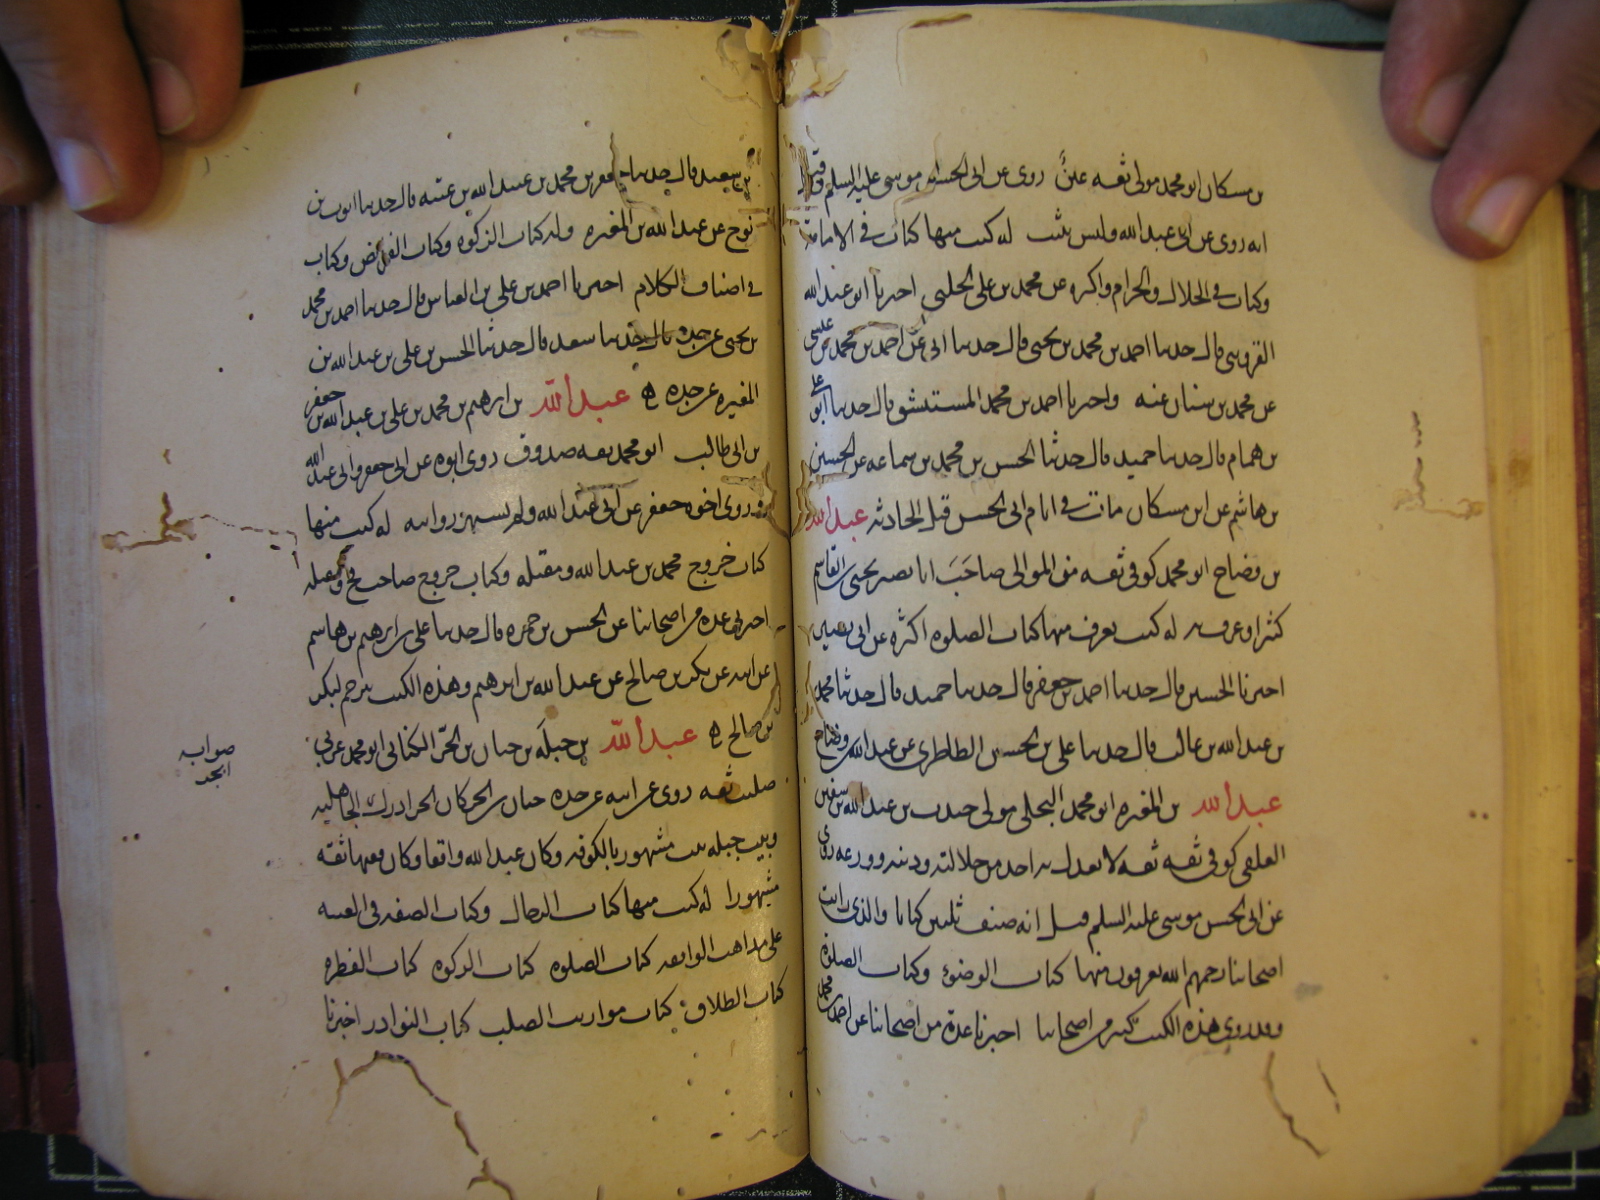 بن مسكان ابو محمد مولى ثقه عين روى عن ابى الحسن موسى عليه السلم وقيل
انه روى عن ابى عبد الله وليس بثبت له كتب منها كتاب فى الامامة
وكتاب فى الحلال والحرام واكثره عن محمد بن على الحلبى اخبرنا ابو عبد الله
القزوينى قال حدثنا احمد بن محمد بن يحيى قال حدثنا ابى عن احمد بن محمد بن عيسى
عن محمد بن سنان عنه واخبرنا احمد بن محمد المستنشق قال حدثنا ابو على
بن همام قال حدثنا حميد قال حدثنا الحسن بن محمد بن سماعه عن الحسين
بن هاشم عن ابن مسكان مات فى ايام ابى الحسن قبل الحادثه عبد الله
بن وضاح ابو محمد كوفى ثقه من الموالى صاحب ابا بصير يحيى بن القاسم
كثيرا وعرف به له كتب يعرف منها كتاب الصلوه اكثره عن ابى بصير
اخبرنا الحسين قال حدثنا احمد بن جعفر قال حدثنا حميد قال حدثنا محمد
بن عبد الله بن غالب قال حدثنا على بن الحسن الطاطرى عن عبد الله بن وضاح
عبد الله بن المغيره ابو محمد البجلى مولى جندب بن عبد الله بن سفين
العلقى كوفى ثقه ثقه لا يعدل به احد من جلالته ودينه وورعه روى
عن ابى الحسن موسى عليه السلم قيل انه صنف ثلثين كتابا والذى رايت
اصحابنا رحمهم الله يعرفون منها كتاب الوضوء وكتاب الصلوة
وقد روى هذه الكتب كثير من اصحابنا اخبرنا عدة من اصحابنا عن احمد بن محمد
بن سعيد قال حدثنا جعفر بن محمد بن عبيد الله بن عتبه قال حدثنا ايوب بن
نوح عن عبد الله بن المغيره وله كتاب الزكوه وكتاب الفرايض وكتاب
فى اصناف الكلام اخبرنا احمد بن على بن العباس قال حدثنا احمد بن محمد
بن يحيى عن جده قال حدثنا سعد قال حدثنا الحسن بن على بن عبد الله بن
المغيره عن جده عبد الله بن ابرهيم بن محمد بن على بن عبد الله بن جعفر
بن ابى طالب ابو محمد ثقه صدوق روى ابوه عن ابى جعفر وابى عبد الله
وروى اخوه جعفر عن ابى عبد الله ولم يشتهر روايته له كتب منها
كتاب خروج محمد بن عبد الله ومقتله وكتاب خروج صاحب فخ ومقتله
اخبرنى عده من اصحابنا عن الحسن بن حمزه قال حدثنا على بن ابرهيم بن هاشم
عن ابيه عن بكر بن صالح عن عبد الله بن ابرهيم وهذه الكتب تترجم لبكر
بن صالح عبد الله بن جبله بن حيان بن الحر الكنانى ابو محمد عربى
صليب ثقه روى عن ابيه عن جده حيان بن الحر كان الحر ادرك الجاهليه
وبيت جبله بيت مشهور بالكوفه وكان عبد الله واقفا وكان فقيها ثقة
مشهورا له كتب منها كتاب الرجال وكتاب الصفه فى الغيبه
على مذاهب الواقفه كتاب الصلوه كتاب الزكوه كتاب الفطره
كتاب الطلاق كتاب مواريث الصلب كتاب النوادر اخبرنا
صوابه
ابجر